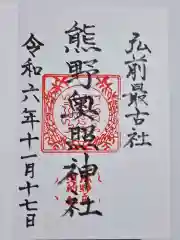 弘前最古社
熊野奥照神社
令和六年十一月十七日